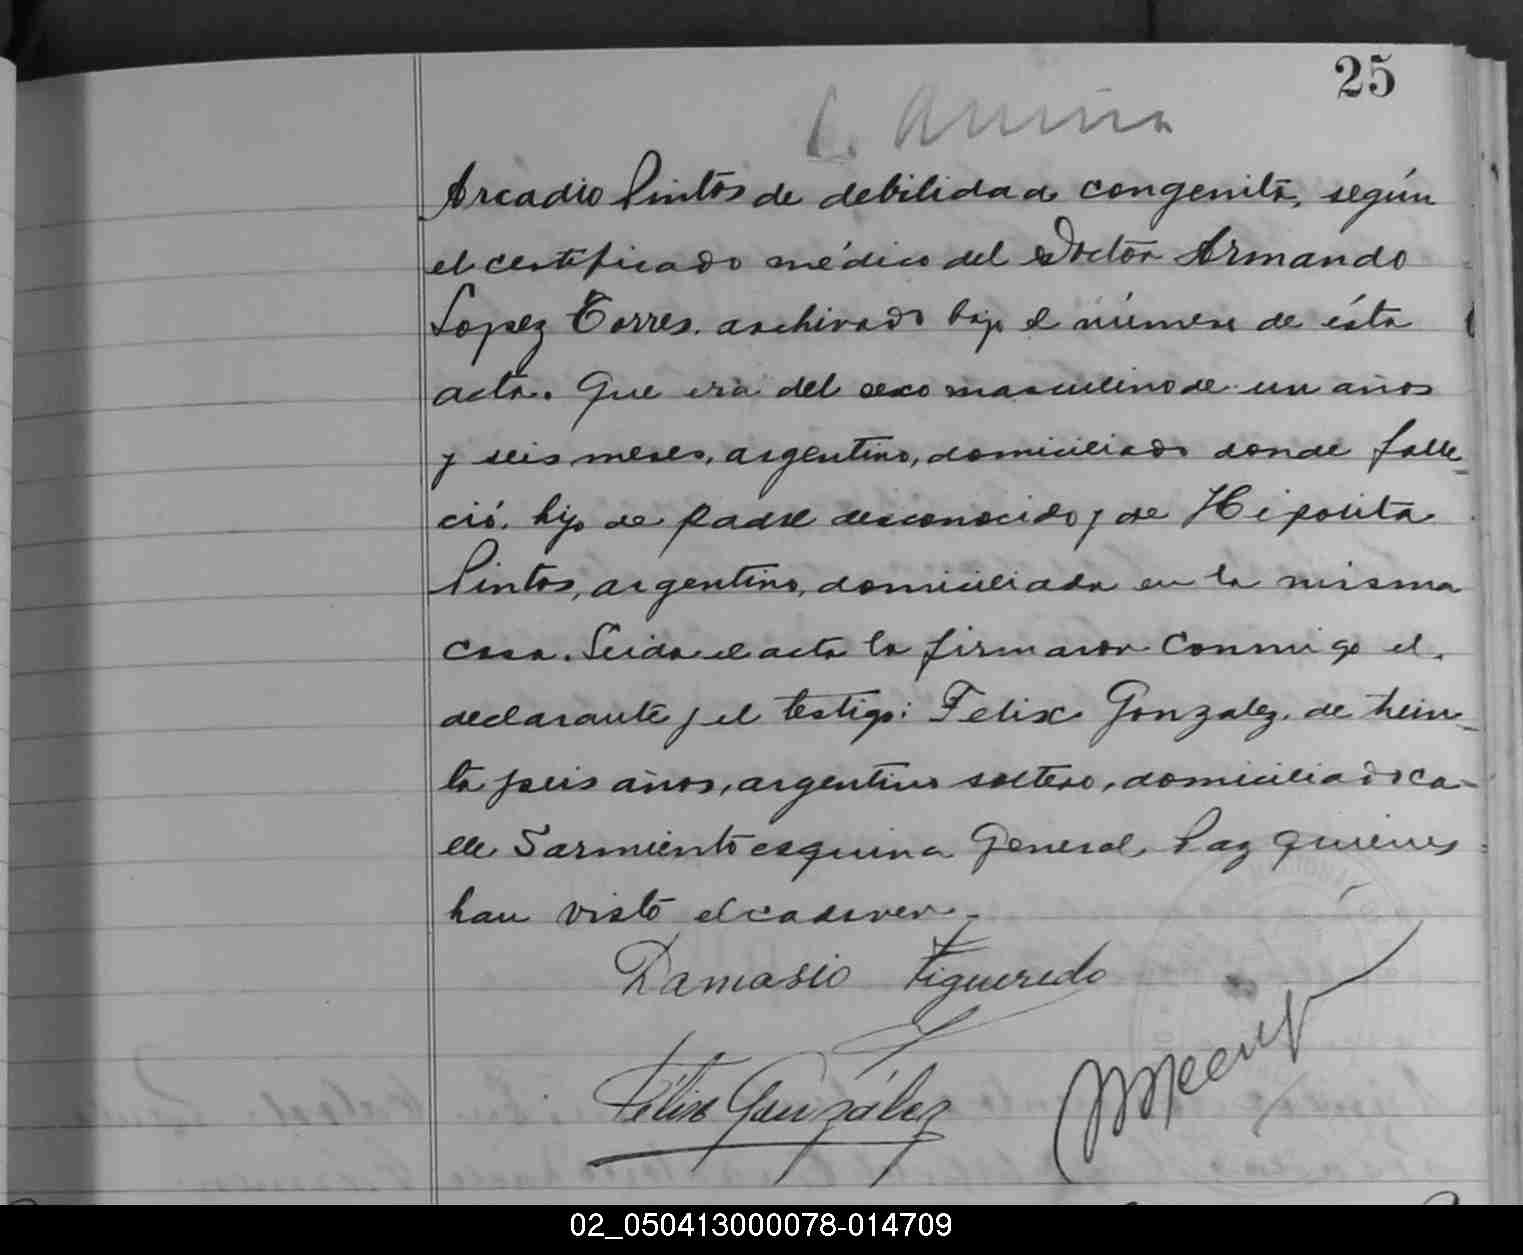 25
Arcadio Pintos de debilidad congenita, según
el certificado médico del Doctor Armando
Lopez Torres. archivado bajo el número de ésta
acta. Que era del sexo masculino de un años
y seis meses, argentino, domiciliado donde falle_
ció. hijo de padre desconocido y de Hipolita
Pintos, argentina, domiciliada en la misma
casa. Leida el acta la firmaron conmigo el.
declarante y el testigo: Felix Gonzalez, de trein_
ta y seis años, argentino soltero, domiciliado ca-
lle Sarmiento esquina General Paz quienes
han visto el cadaver.-
Damasio Figueredo
Félix González
02_050413000078-014709